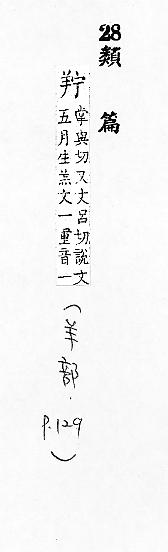 28 類篇
羜 掌與切又丈呂切說文
五月生羔文一重音一
(羊部. P.129)